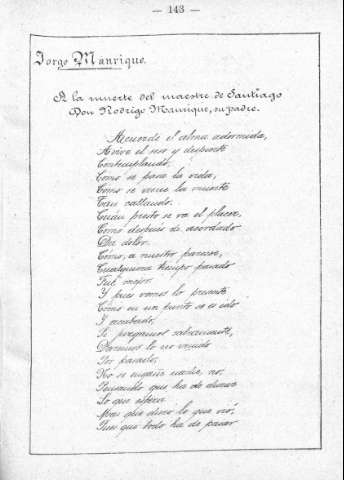 — 143 —
Jorge Manrique.
A la muerte del maestre de Santiago
Don Rodrigo Manrique, su padre.
Recuerde el alma adormida,
Avive el seso y despierte
Contemplando
Cómo se pasa la vida,
Cómo se viene la muerte
Tan callando.
Cuán presto se va el placer,
Cómo después de acordado
Da dolor.
Cómo, a nuestro parecer,
Cualquiera tiempo pasado
Fué mejor.
Y pues vemos lo presente
Cómo en un punto se es ido
Y acabado,
Si juzgamos sabiamente,
Daremos lo no venido
Por pasado.
No se engañe nadie, no,
Pensando que ha de durar
Lo que espera
Mas que duró lo que vió,
Pues que todo ha de pasar